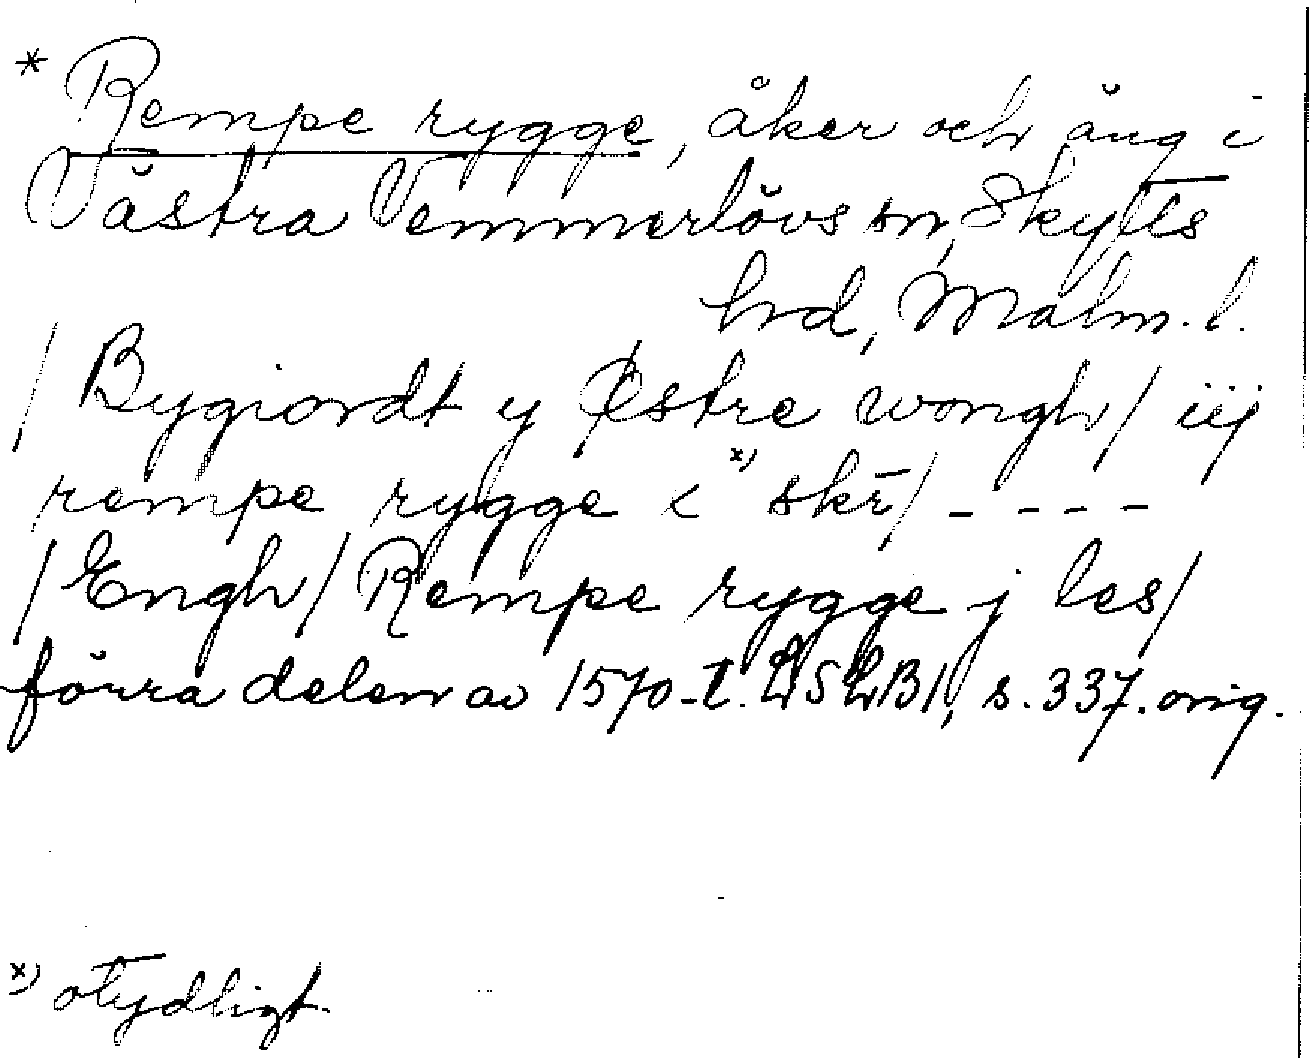 * Rempe rygge, åker och äng i
Västra Vemmerlövs sn, Skytts
hrd, Malm. l.
/ Bygiordt y Østre wongh / iij
rempe rygge x x) skr̄ / - - - -
/ Engh / Rempe rygge j les /
förra delen av 1570-t. LSLB1, s. 337. orig.
x) otydligt.